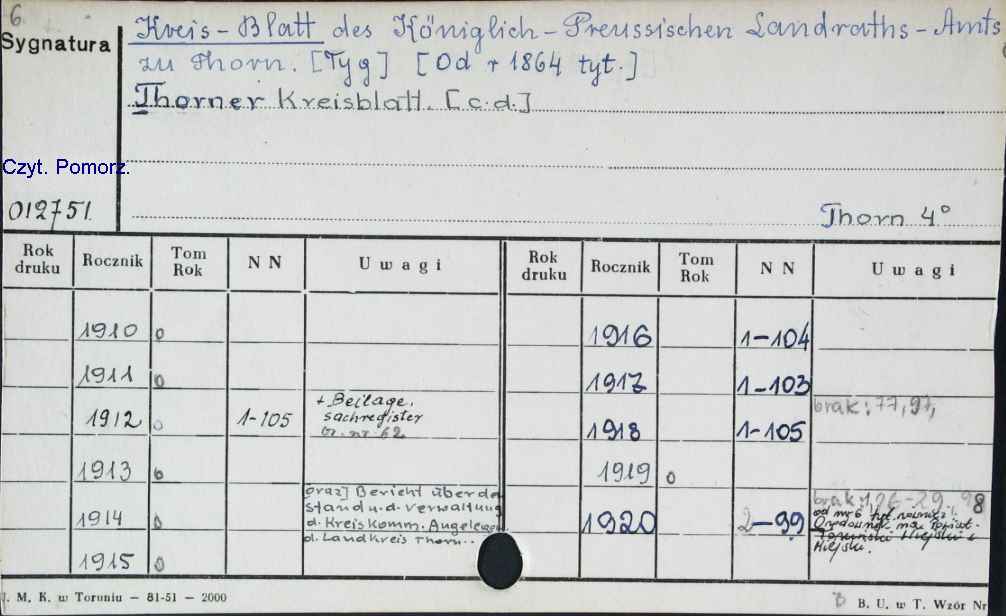 6.
Sygnatura
Kreis-Blatt des Königlich-Preussischen Landraths-Amts
zu Thorn. [Tyg] [Od r 1864 tyt.]
Thorner Kreisblatt. [c.d.]
Czyt. Pomorz.
012751.
Thorn 4°
Rok druku Rocznik Tom Rok N N Uwagi Rok druku Rocznik Tom Rok N N Uwagi
1910 0 1916 1-104
1911 0 1917 1-103
1912 0 1-105 + Beilage. 1918 1-105 brak: 77, 97,
sachregister
nr. 62
1913 0 1919 0
1914 0 oraz] Bericht über de 1920 2-99 brak: 26-29, 98
Stand u. d. Verwaltung od nr 6 tyt również:
d. Kreiskomm. Angelegen Orędownik na Powiat
d. Landkreis Thorn.. Toruński Miejski i
Miejski.
1915 0
J. M. K. w Toruniu — 81-51 — 2000
B. U. w T. Wzór Nr